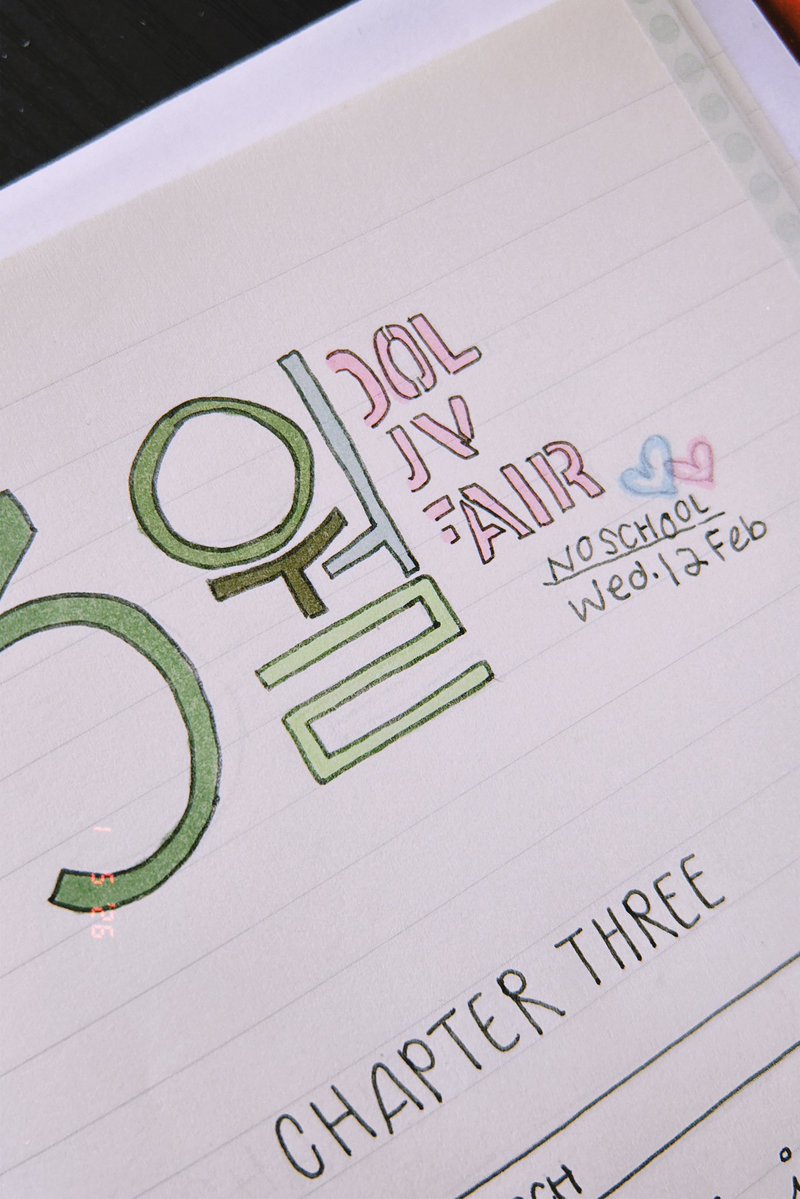 3월
DOL
UV
FAIR
NO SCHOOL
Wed. 12 Feb
CHAPTER THREE